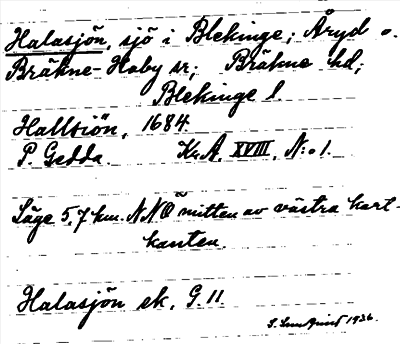 Halasjön, sjö i Blekinge; Åryd o.
Bräkne-Hoby sr; Bräkne hd;
Blekinge l.
Halltsiön, 1684.
P. Gedda. Kr.A. XVIII, N:o 1.
Läge 5,7 km. NNO mitten av västra kart-
kanten.
Halasjön ek. G. 11.
S. Lundquist 1936.